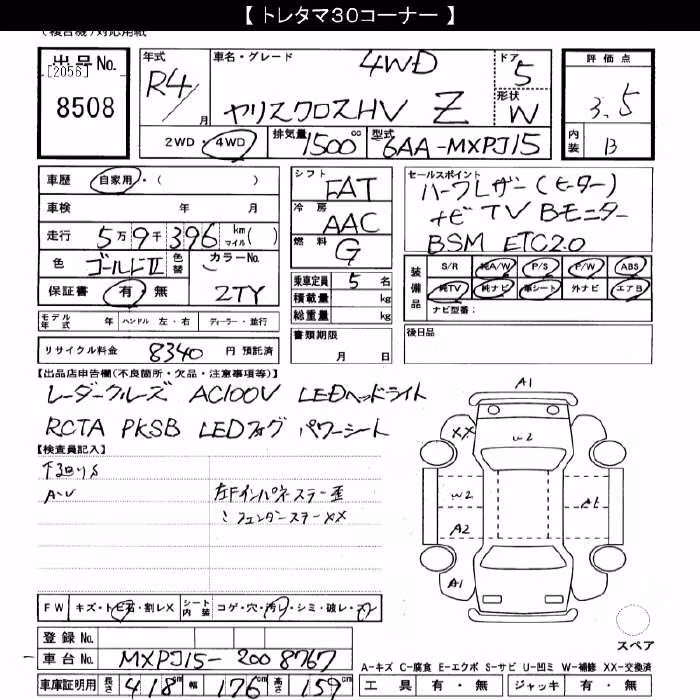 【 トレタマ30コーナー 】
(複合機)対応用紙
出品No.
[2056]
8508
年式
R4/
月
車名・グレード
4WD
ヤリスクロスHV Z
ドア
5
形状
W
評価点
3.5
内装
B
2WD・4WD
排気量
1500cc
型式
6AA-MXPJ15
車歴
自家用・( )
車検 年 月
走行 5万9千396 km マイル( )
色 ゴールドII
色替
カラーNo.
2TY
保証書 有・無
シフト
FAT
冷房
AAC
燃料
G
乗車定員 5 名
積載量 kg
総重量 kg
セールスポイント
ハーフレザー(ヒーター)
ナビ TV Bモニター
BSM ETC2.0
装備品
S/R 純A/W P/S P/W ABS
純TV 純ナビ 革シート 外ナビ エアB
ナビ型番:
モデル年式 年 ハンドル 左・右 ディーラー・並行
リサイクル料金 8340 円 預託済
書類期限
月 日
後日品
【出品店申告欄(不良箇所・欠品・注意事項等)】
レーダークルーズ AC100V LEDヘッドライト
RCTA PKSB LEDフォグ パワーシート
【検査員記入】
下回りS
A・U
左Fインパネステー歪
〃フェンダーステーXX
A1
XX
W2
W2
A2
A1
A1
FW キズ・トビ石・割レX
シート内装
コゲ・穴・汚レ・シミ・破レ・スレ
スペア
登録No.
車台No. MXPJ15-2008767
車庫証明用 長さ 418cm 幅 176cm 高さ 159cm
A-キズ C-腐食 E-エクボ S-サビ U-凹ミ W-補修 XX-交換済
工具 有・無 ジャッキ 有・無